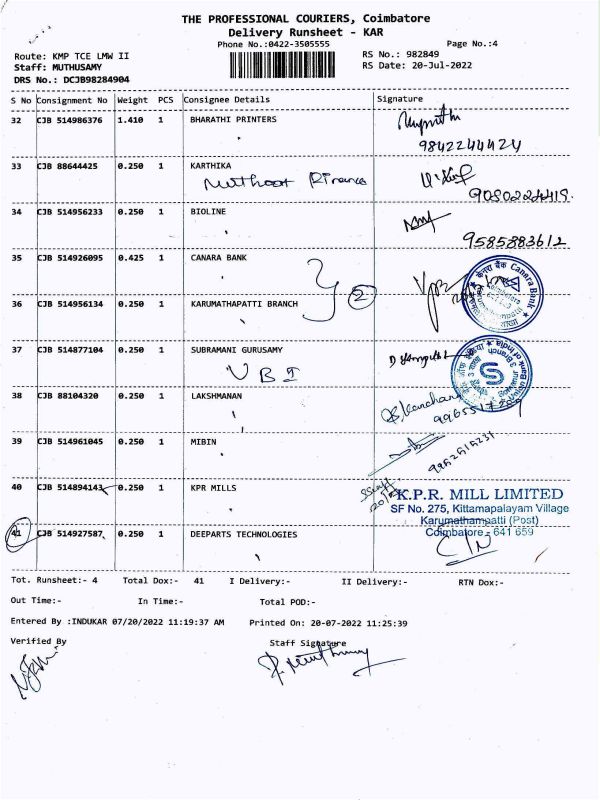 THE PROFESSIONAL COURIERS, Coimbatore
Delivery Runsheet - KAR
Phone No.:0422-3505555
Page No.:4
Route: KMP TCE LMW II
RS No.: 982849
Staff: MUTHUSAMY
RS Date: 20-Jul-2022
DRS No.: DCJB98284904
S No Consignment No Weight PCS Consignee Details Signature
32 CJB 514986376 1.410 1 BHARATHI PRINTERS
9842244424
33 CJB 88644425 0.250 1 KARTHIKA
Muthoot Finance
34 CJB 514956233 0.250 1 BIOLINE
9585883612
35 CJB 514926095 0.425 1 CANARA BANK
केनरा बैंक Canara Bank
2
36 CJB 514956134 0.250 1 KARUMATHAPATTI BRANCH
37 CJB 514877104 0.250 1 SUBRAMANI GURUSAMY
UBI
Union Bank of India
38 CJB 88104320 0.250 1 LAKSHMANAN
39 CJB 514961045 0.250 1 MIBIN
9952515231
40 CJB 514894143 0.250 1 KPR MILLS
K.P.R. MILL LIMITED
SF No. 275, Kittamapalayam Village
Karumathampatti (Post)
Coimbatore - 641 659
41 CJB 514927587 0.250 1 DEEPARTS TECHNOLOGIES
Tot. Runsheet:- 4 Total Dox:- 41 I Delivery:- II Delivery:- RTN Dox:-
Out Time:- In Time:- Total POD:-
Entered By :INDUKAR 07/20/2022 11:19:37 AM Printed On: 20-07-2022 11:25:39
Verified By Staff Signature